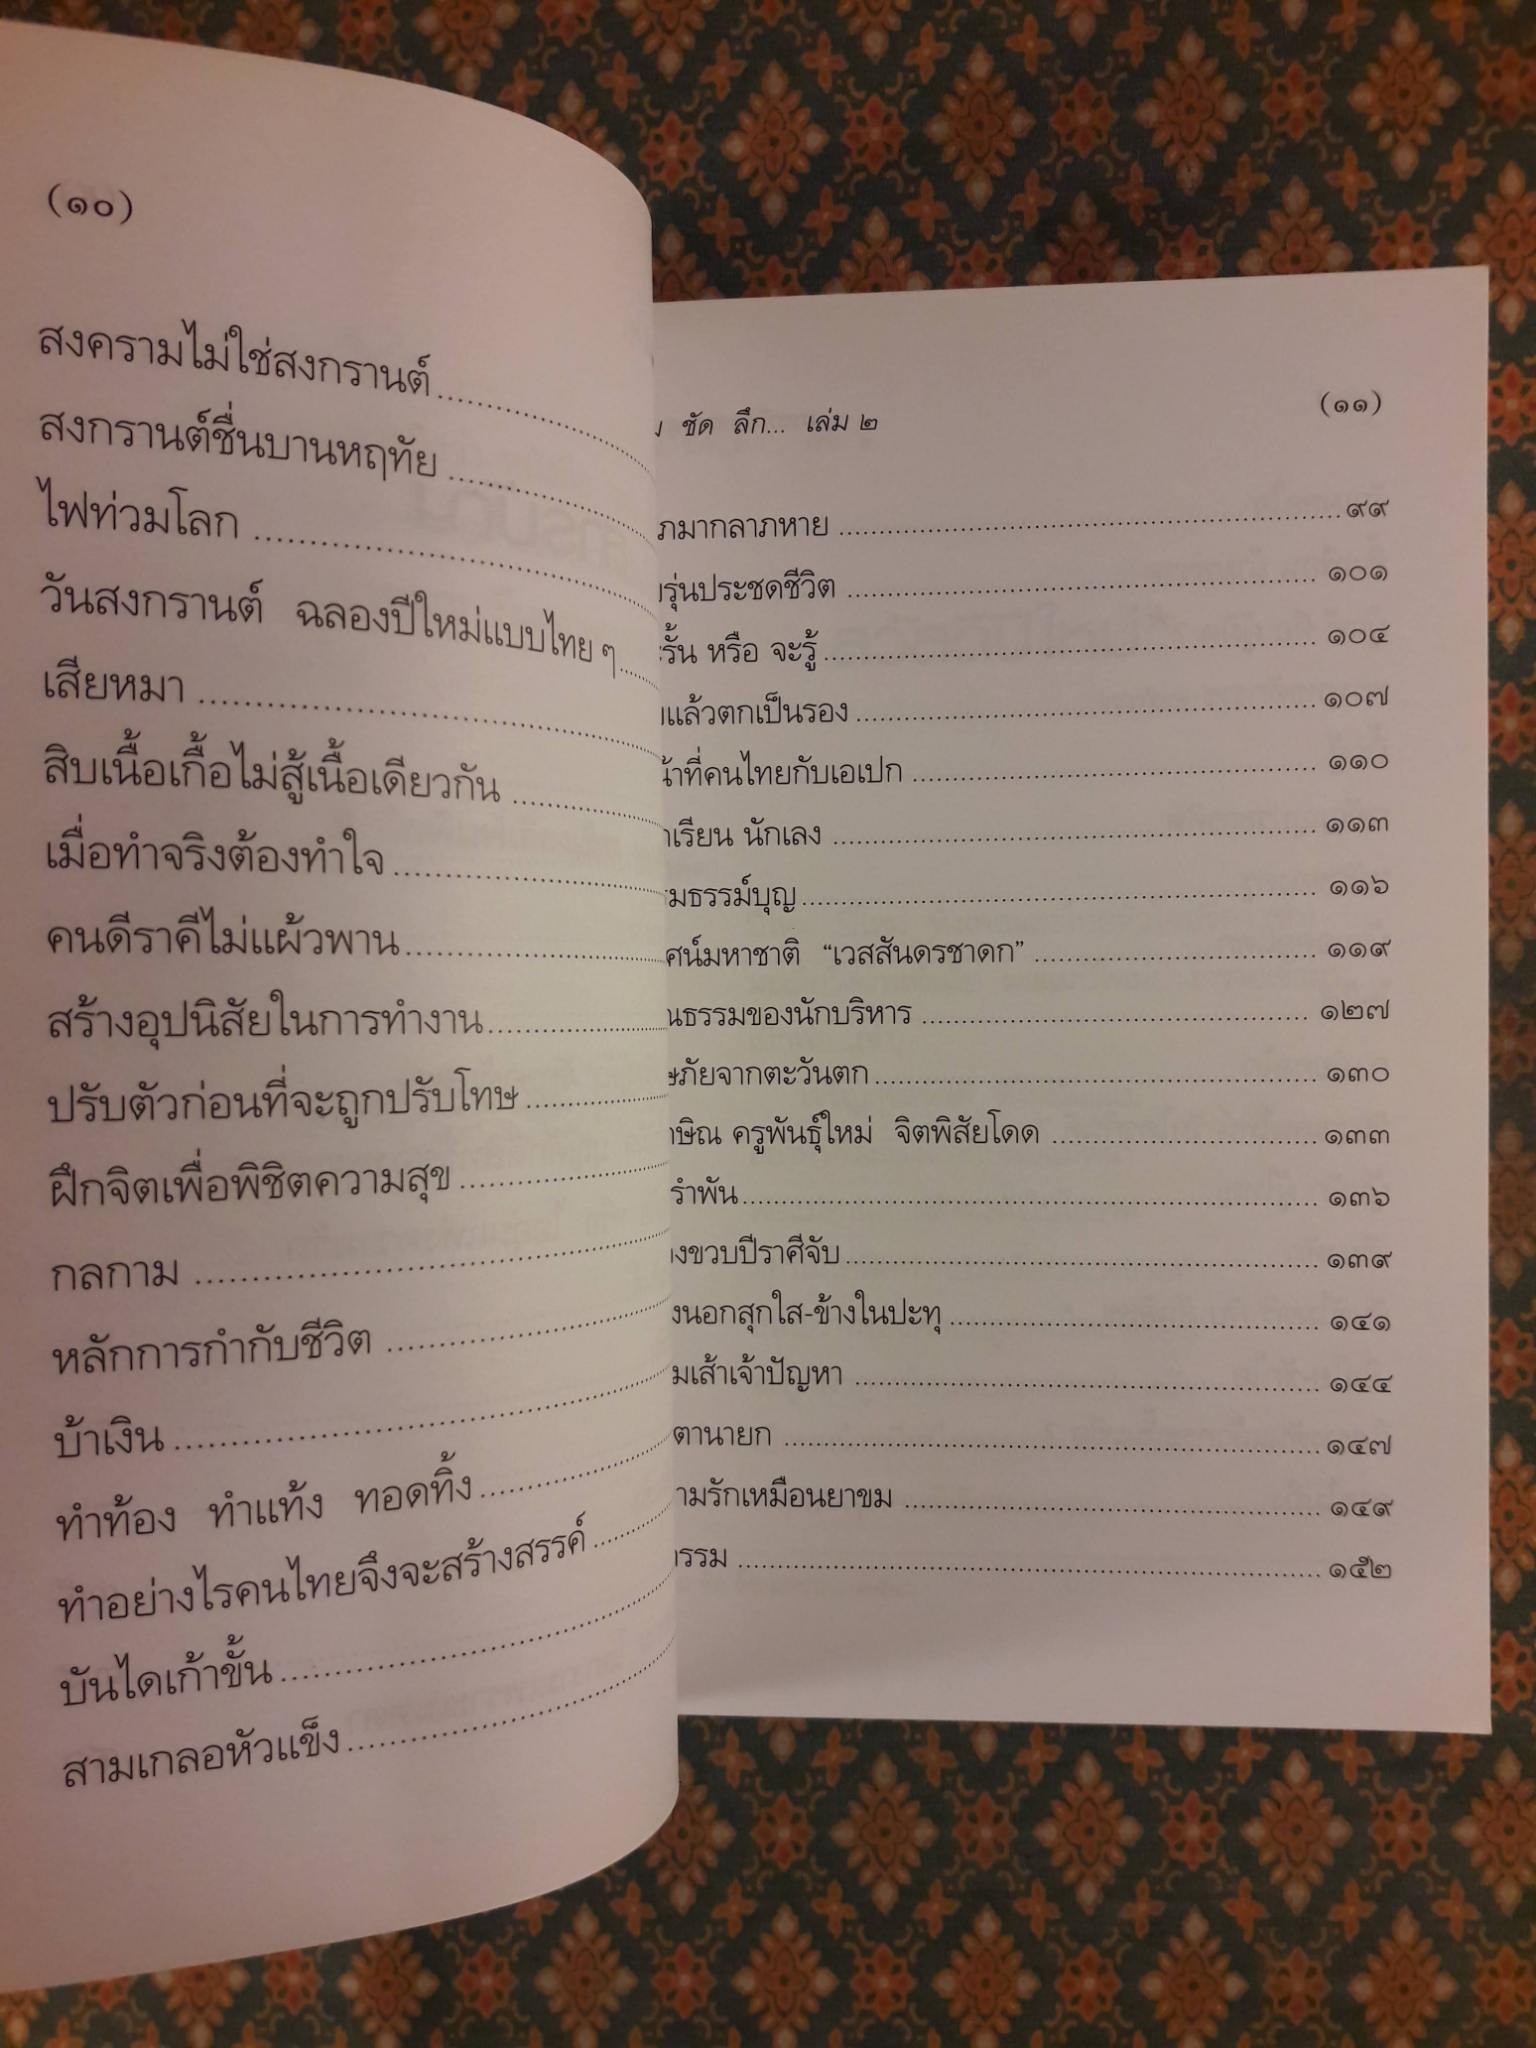 (๑๐)
สงครามไม่ใช่สงกรานต์
สงกรานต์ชื่นบานหฤทัย
ไฟท่วมโลก
วันสงกรานต์ ฉลองปีใหม่แบบไทย ๆ
เสียหมา
สิบเนื้อเกื้อไม่สู้เนื้อเดียวกัน
เมื่อทำจริงต้องทำใจ
คนดีราคีไม่แผ้วพาน
สร้างอุปนิสัยในการทำงาน
ปรับตัวก่อนที่จะถูกปรับโทษ
ฝึกจิตเพื่อพิชิตความสุข
กลกาม
หลักการกำกับชีวิต
บ้าเงิน
ทำท้อง ทำแท้ง ทอดทิ้ง
ทำอย่างไรคนไทยจึงจะสร้างสรรค์
บันไดเก้าขั้น
สามเกลอหัวแข็ง
ชัด ลึก... เล่ม ๒ (๑๑)
ภมากลาภหาย ๙๙
รุ่นประชดชีวิต ๑๐๑
รั้น หรือ จะรู้ ๑๐๔
แล้วตกเป็นรอง ๑๐๗
ที่คนไทยกับเอเปก ๑๑๐
เรียน นักเลง ๑๑๓
มธรรม์บุญ ๑๑๖
ศน์มหาชาติ “เวสสันดรชาดก” ๑๑๙
ณธรรมของนักบริหาร ๑๒๗
ภัยจากตะวันตก ๑๓๐
ษิณ ครูพันธุ์ใหม่ จิตพิสัยโดด ๑๓๓
รำพัน ๑๓๖
งขวบปีราศีจับ ๑๓๙
งนอกสุกใส-ข้างในปะทุ ๑๔๑
มเส้าเจ้าปัญหา ๑๔๔
ตานายก ๑๔๗
ามรักเหมือนยาขม ๑๔๙
รรม ๑๕๒